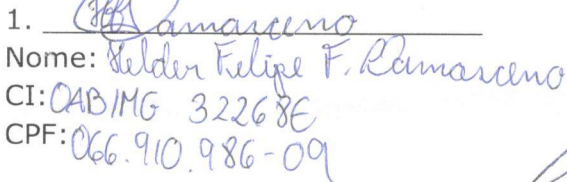 1. HF Damasceno
Nome: Helder Felipe F. Damasceno
CI: OAB/MG 32268E
CPF: 066.910.986-09